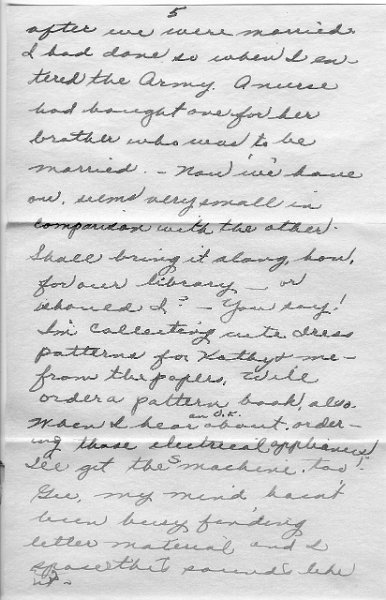 5
after we were married.
I had done so when I en-
tered the Army. A nurse
had bought one for her
brother who was to be
married. - Now we have
one, seems very small in
comparison with the other.
Shall bring it along, hon,
for our library - or
should I? - You say!
I'm collecting cute dress
patterns for Kathy & me -
from the papers. We'll
order a pattern book, also.
When I hear about an O.K. order-
ing those electrical appliances,
I'll get the S machine, too!
Gee, my mind hasn't
been busy finding
letter material and I
spose this sounds like
it -